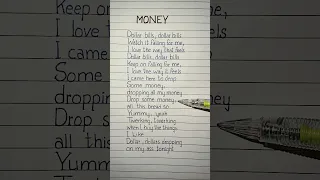 MONEY
Dollar bills, dollar bills
Watch it falling for me,
I love the way that feels
Dollar bills, dollar bills
Keep on falling for me,
I love the way it feels
I came here to drop
Some money,
dropping all my money
Drop some money,
all this bread so
Yummy, yeah
Twerking, twerking
when I buy the things
I like
Dollar, dollars dropping
on my ass tonight
Keep on
I love t
I came
Some
dropping
Drop so
all this
Yummy